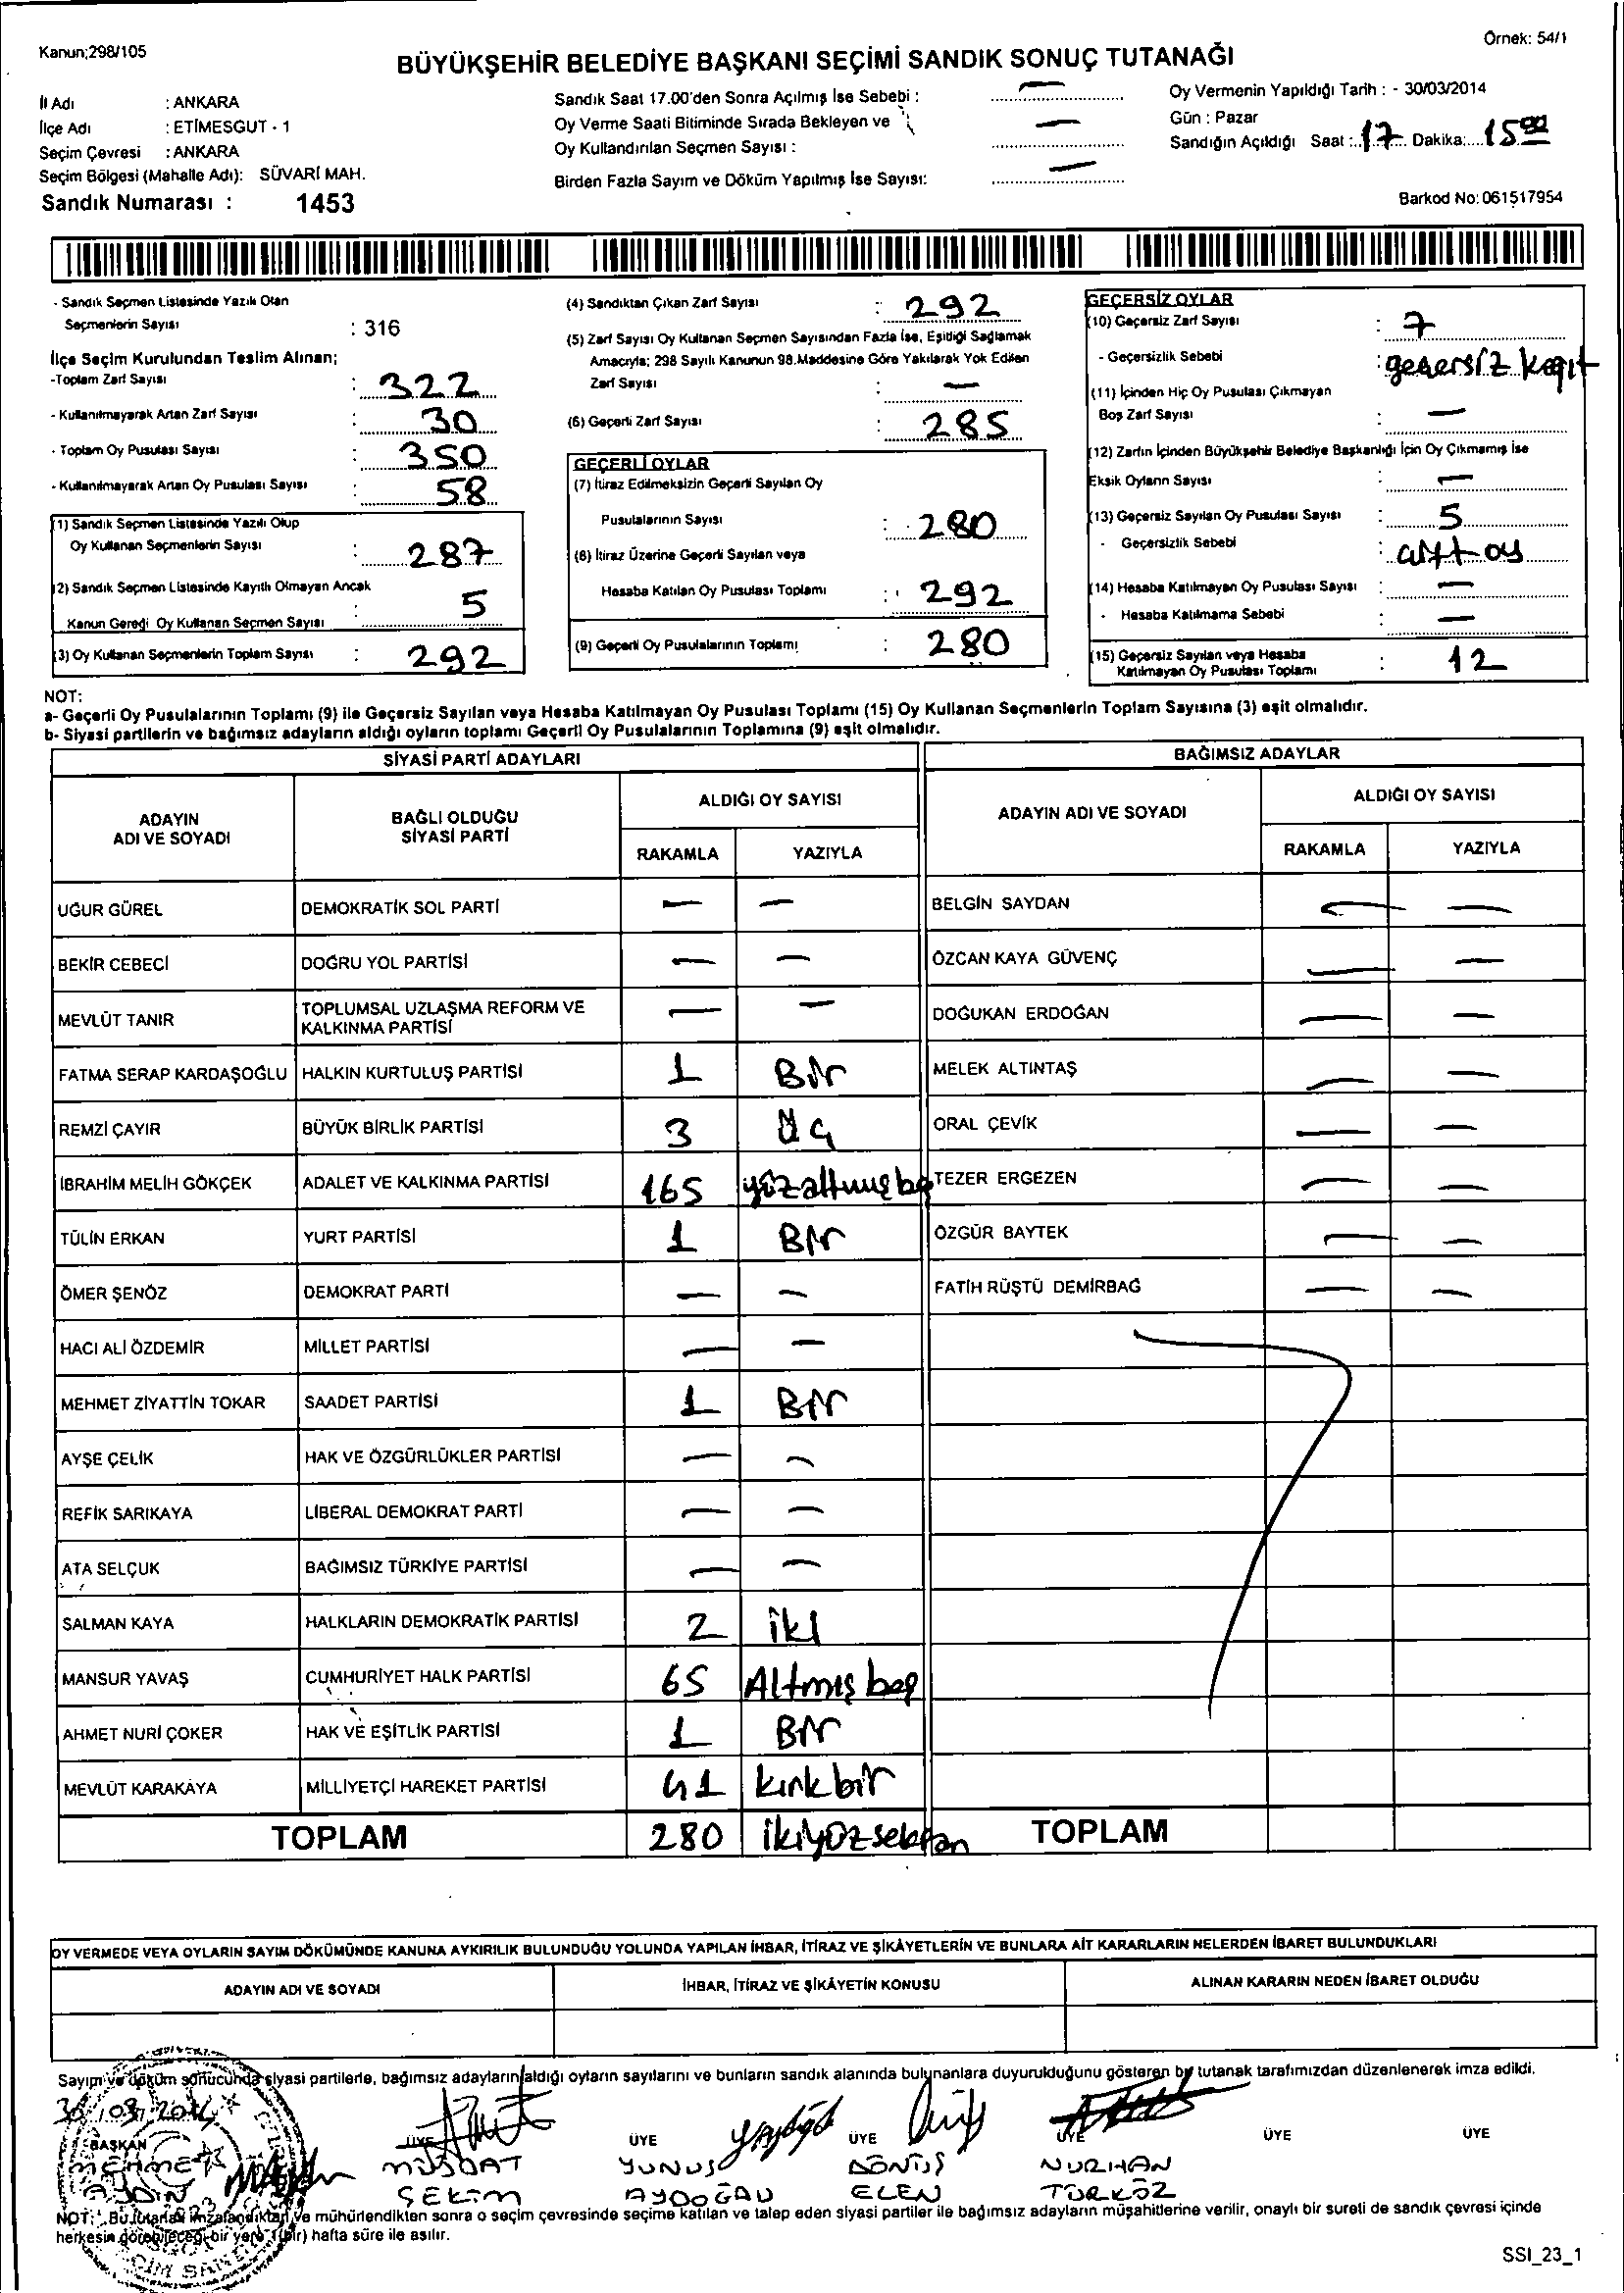 Kanun;298/105
Örnek: 54/1
BÜYÜKŞEHİR BELEDİYE BAŞKANI SEÇİMİ SANDIK SONUÇ TUTANAĞI
İl Adı : ANKARA
İlçe Adı : ETİMESGUT - 1
Seçim Çevresi : ANKARA
Seçim Bölgesi (Mahalle Adı): SÜVARİ MAH.
Sandık Numarası : 1453
Sandık Saat 17.00'den Sonra Açılmış İse Sebebi : —
Oy Verme Saati Bitiminde Sırada Bekleyen ve
Oy Kullandırılan Seçmen Sayısı : —
Birden Fazla Sayım ve Döküm Yapılmış İse Sayısı: —
Oy Vermenin Yapıldığı Tarih : - 30/03/2014
Gün : Pazar
Sandığın Açıldığı Saat : 17 Dakika: 15
Barkod No: 061517954
- Sandık Seçmen Listesinde Yazılı Olan
Seçmenlerin Sayısı : 316
İlçe Seçim Kurulundan Teslim Alınan;
-Toplam Zarf Sayısı : 322
- Kullanılmayarak Artan Zarf Sayısı : 30
- Toplam Oy Pusulası Sayısı : 350
- Kullanılmayarak Artan Oy Pusulası Sayısı : 58
(1) Sandık Seçmen Listesinde Yazılı Olup
Oy Kullanan Seçmenlerin Sayısı : 287
(2) Sandık Seçmen Listesinde Kayıtlı Olmayan Ancak
Kanun Gereği Oy Kullanan Seçmen Sayısı : 5
(3) Oy Kullanan Seçmenlerin Toplam Sayısı : 292
(4) Sandıktan Çıkan Zarf Sayısı : 292
(5) Zarf Sayısı Oy Kullanan Seçmen Sayısından Fazla İse, Eşitliği Sağlamak
Amacıyla; 298 Sayılı Kanunun 98.Maddesine Göre Yakılarak Yok Edilen
Zarf Sayısı : —
(6) Geçerli Zarf Sayısı : 285
GEÇERLİ OYLAR
(7) İtiraz Edilmeksizin Geçerli Sayılan Oy
Pusulalarının Sayısı : 280
(8) İtiraz Üzerine Geçerli Sayılan veya
Hesaba Katılan Oy Pusulası Toplamı : 292
(9) Geçerli Oy Pusulalarının Toplamı : 280
GEÇERSİZ OYLAR
(10) Geçersiz Zarf Sayısı : 7
- Geçersizlik Sebebi : geçersiz kağıt
(11) İçinden Hiç Oy Pusulası Çıkmayan
Boş Zarf Sayısı : —
(12) Zarfın İçinden Büyükşehir Belediye Başkanlığı İçin Oy Çıkmamış İse
Eksik Oyların Sayısı : —
(13) Geçersiz Sayılan Oy Pusulası Sayısı : 5
- Geçersizlik Sebebi : çift oy
(14) Hesaba Katılmayan Oy Pusulası Sayısı : —
- Hesaba Katılmama Sebebi : —
(15) Geçersiz Sayılan veya Hesaba
Katılmayan Oy Pusulası Toplamı : 12
NOT:
a- Geçerli Oy Pusulalarının Toplamı (9) ile Geçersiz Sayılan veya Hesaba Katılmayan Oy Pusulası Toplamı (15) Oy Kullanan Seçmenlerin Toplam Sayısına (3) eşit olmalıdır.
b- Siyasi partilerin ve bağımsız adayların aldığı oyların toplamı Geçerli Oy Pusulalarının Toplamına (9) eşit olmalıdır.
SİYASİ PARTİ ADAYLARI
ADAYIN ADI VE SOYADI
BAĞLI OLDUĞU SİYASİ PARTİ
ALDIĞI OY SAYISI
RAKAMLA YAZIYLA
UĞUR GÜREL DEMOKRATİK SOL PARTİ — —
BEKİR CEBECİ DOĞRU YOL PARTİSİ — —
MEVLÜT TANIR TOPLUMSAL UZLAŞMA REFORM VE KALKINMA PARTİSİ — —
FATMA SERAP KARDAŞOĞLU HALKIN KURTULUŞ PARTİSİ 1 Bir
REMZİ ÇAYIR BÜYÜK BİRLİK PARTİSİ 3 Üç
İBRAHİM MELİH GÖKÇEK ADALET VE KALKINMA PARTİSİ 165 yüzaltmışbeş
TÜLİN ERKAN YURT PARTİSİ 1 Bir
ÖMER ŞENÖZ DEMOKRAT PARTİ — —
HACI ALİ ÖZDEMİR MİLLET PARTİSİ — —
MEHMET ZİYATTİN TOKAR SAADET PARTİSİ 1 Bir
AYŞE ÇELİK HAK VE ÖZGÜRLÜKLER PARTİSİ — —
REFİK SARIKAYA LİBERAL DEMOKRAT PARTİ — —
ATA SELÇUK BAĞIMSIZ TÜRKİYE PARTİSİ — —
SALMAN KAYA HALKLARIN DEMOKRATİK PARTİSİ 2 iki
MANSUR YAVAŞ CUMHURİYET HALK PARTİSİ 65 Altmış beş
AHMET NURİ ÇOKER HAK VE EŞİTLİK PARTİSİ 1 Bir
MEVLÜT KARAKAYA MİLLİYETÇİ HAREKET PARTİSİ 41 kırkbir
TOPLAM 280 ikiyüzseksen
BAĞIMSIZ ADAYLAR
ADAYIN ADI VE SOYADI
ALDIĞI OY SAYISI
RAKAMLA YAZIYLA
BELGİN SAYDAN — —
ÖZCAN KAYA GÜVENÇ — —
DOĞUKAN ERDOĞAN — —
MELEK ALTINTAŞ — —
ORAL ÇEVİK — —
TEZER ERGEZEN — —
ÖZGÜR BAYTEK — —
FATİH RÜŞTÜ DEMİRBAĞ — —
TOPLAM
OY VERMEDE VEYA OYLARIN SAYIM DÖKÜMÜNDE KANUNA AYKIRILIK BULUNDUĞU YOLUNDA YAPILAN İHBAR, İTİRAZ VE ŞİKÂYETLERİN VE BUNLARA AİT KARARLARIN NELERDEN İBARET BULUNDUKLARI
ADAYIN ADI VE SOYADI
İHBAR, İTİRAZ VE ŞİKÂYETİN KONUSU
ALINAN KARARIN NEDEN İBARET OLDUĞU
Sayım ve döküm sonucunda siyasi partilerle, bağımsız adayların aldığı oyların sayılarını ve bunların sandık alanında bulunanlara duyurulduğunu gösteren bu tutanak tarafımızdan düzenlenerek imza edildi.
30/03/2014
BAŞKAN ÜYE ÜYE ÜYE ÜYE ÜYE ÜYE
MEHMET AYDIN
YUNUS AYDOĞAN
ELEN
NURHAN TÜRKÖZ
NOT: Bu tutanak imzalandıktan ve mühürlendikten sonra o seçim çevresinde seçime katılan ve talep eden siyasi partiler ile bağımsız adayların müşahitlerine verilir, onaylı bir sureti de sandık çevresi içinde
herkesin görebileceği bir yere 1 (bir) hafta süre ile asılır.
SSI_23_1